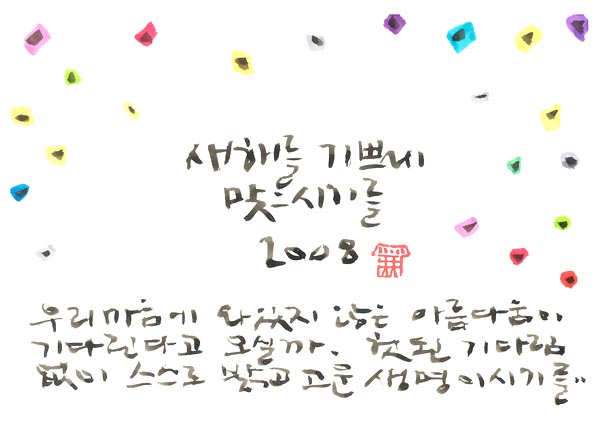 새해를 기쁘게
맞으시기를
2008
우리마음에 와있지 않은 아름다움이
기다린다고 오실까. 헛된 기다림
없이 스스로 밝고 고운 생명이시기를..